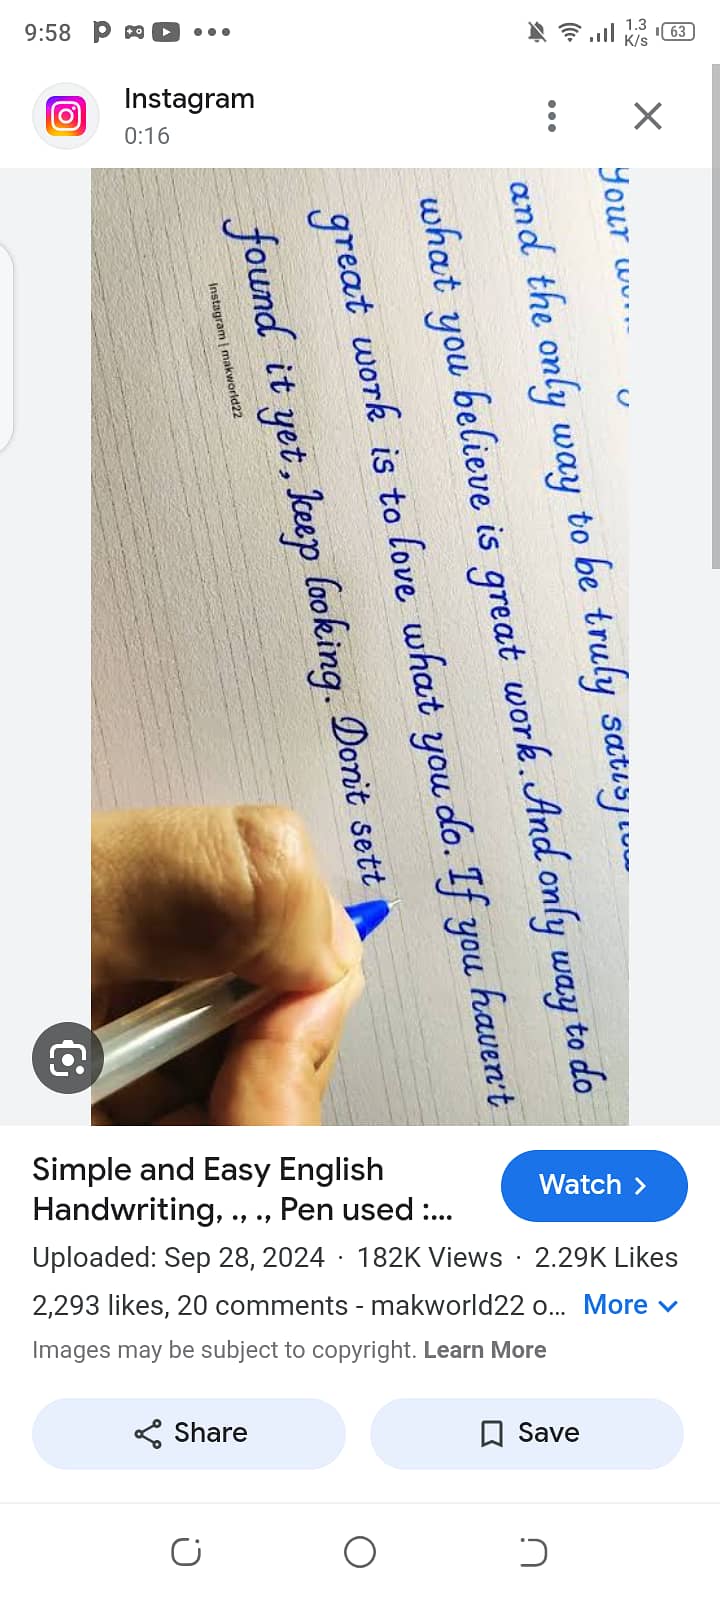 9:58
1.3
K/s
63
Instagram
0:16
your
and the only way to be truly
what you believe is great work. And only way to do
great work is to love what you do. If you haven't
found it yet, keep looking. Don't sett
Instagram | makworld22
Simple and Easy English
Handwriting, ., ., Pen used :...
Watch
Uploaded: Sep 28, 2024 · 182K Views · 2.29K Likes
2,293 likes, 20 comments - makworld22 o... More
Images may be subject to copyright. Learn More
Share
Save